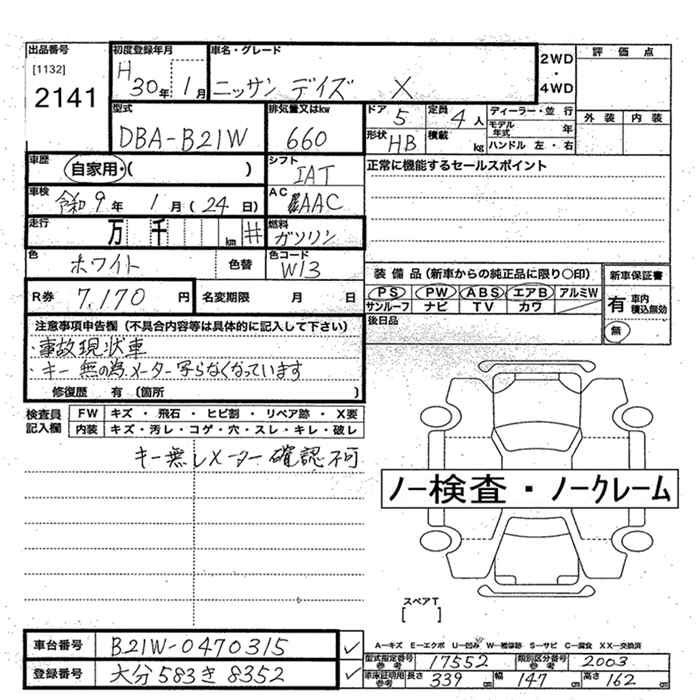 出品番号
[1132]
2141
初度登録年月
H 30年 1月
車名・グレード
ニッサン デイズ X
2WD
・
4WD
評価点
外装 内装
型式
DBA-B21W
排気量又はkw
660
ドア 5
定員 4人
ディーラー・並行
モデル年式 年
形状 HB
積載 kg
ハンドル 左・右
車歴
自家用・( )
シフト
IAT
正常に機能するセールスポイント
車検
令和 9年 1月 (24日)
AC
AAC
走行
万 千 km #
燃料
ガソリン
色
ホワイト
色替
色コード
W13
装備品(新車からの純正品に限り○印)
新車保証書
PS PW ABS エアB アルミW
サンルーフ ナビ TV カワ
有 車内積込無効
無
R券 7,170円
名変期限 月 日
後日品
注意事項申告欄(不具合内容等は具体的に記入して下さい)
・事故現状車
・キー無の為メーター写らなくなっています
修復歴 有〔箇所 〕
検査員記入欄
FW キズ・飛石・ヒビ割・リペア跡・X要
内装 キズ・汚レ・コゲ・穴・スレ・キレ・破レ
キー無しメーター確認不可
ノー検査・ノークレーム
スペアT
[ ]
車台番号 B21W-0470315 ✓
登録番号 大分583き8352 ✓
A－キズ E－エクボ U－凹み W－補修跡 S－サビ C－腐食 XX－交換済
型式指定番号参考 17552 類別区分番号参考 2003
車庫証明用参考 長さ 339cm 幅 147cm 高さ 162cm